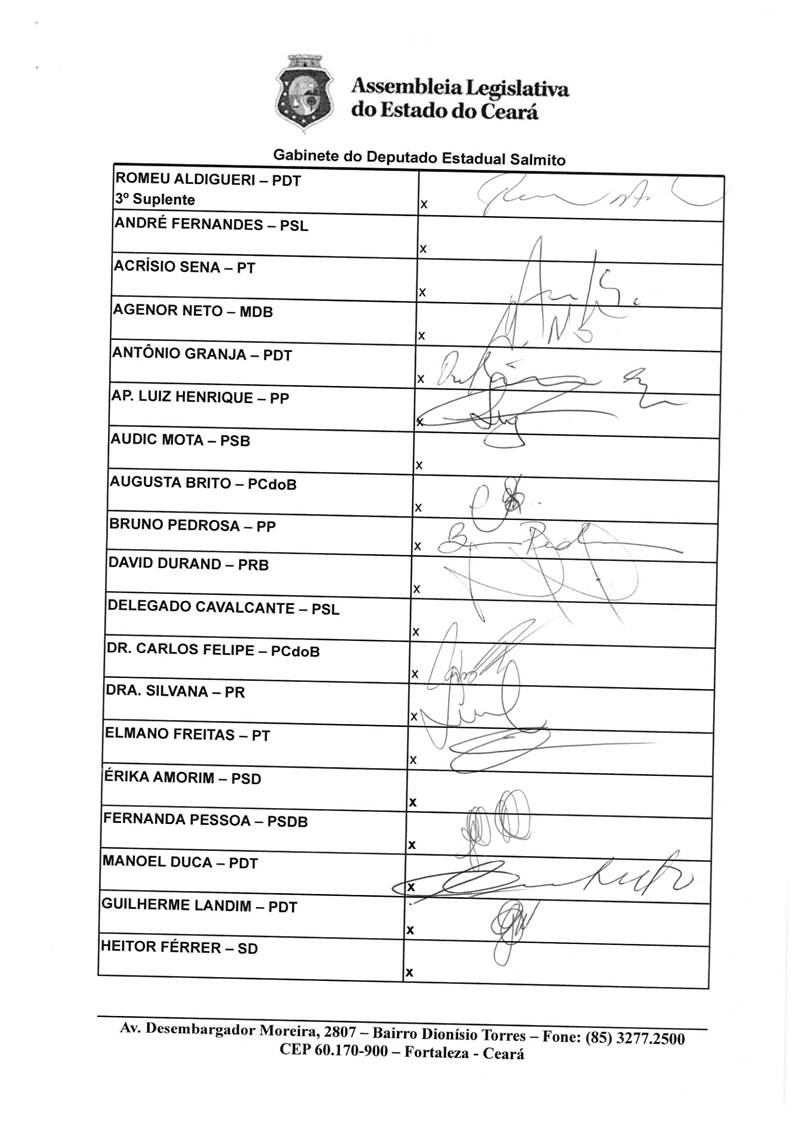 Assembleia Legislativa
do Estado do Ceará
Gabinete do Deputado Estadual Salmito
ROMEU ALDIGUERI – PDT
3º Suplente
x
ANDRÉ FERNANDES – PSL
x
ACRÍSIO SENA – PT
x
AGENOR NETO – MDB
x
ANTÔNIO GRANJA – PDT
x
AP. LUIZ HENRIQUE – PP
x
AUDIC MOTA – PSB
x
AUGUSTA BRITO – PCdoB
x
BRUNO PEDROSA – PP
x
DAVID DURAND – PRB
x
DELEGADO CAVALCANTE – PSL
x
DR. CARLOS FELIPE – PCdoB
x
DRA. SILVANA – PR
x
ELMANO FREITAS – PT
x
ÉRIKA AMORIM – PSD
x
FERNANDA PESSOA – PSDB
x
MANOEL DUCA – PDT
x
GUILHERME LANDIM – PDT
x
HEITOR FÉRRER – SD
x
Av. Desembargador Moreira, 2807 – Bairro Dionísio Torres – Fone: (85) 3277.2500
CEP 60.170-900 – Fortaleza - Ceará